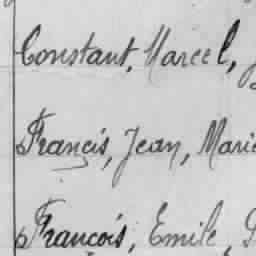 Constant, Marcel,
Francis, Jean, Marie
François, Emile,